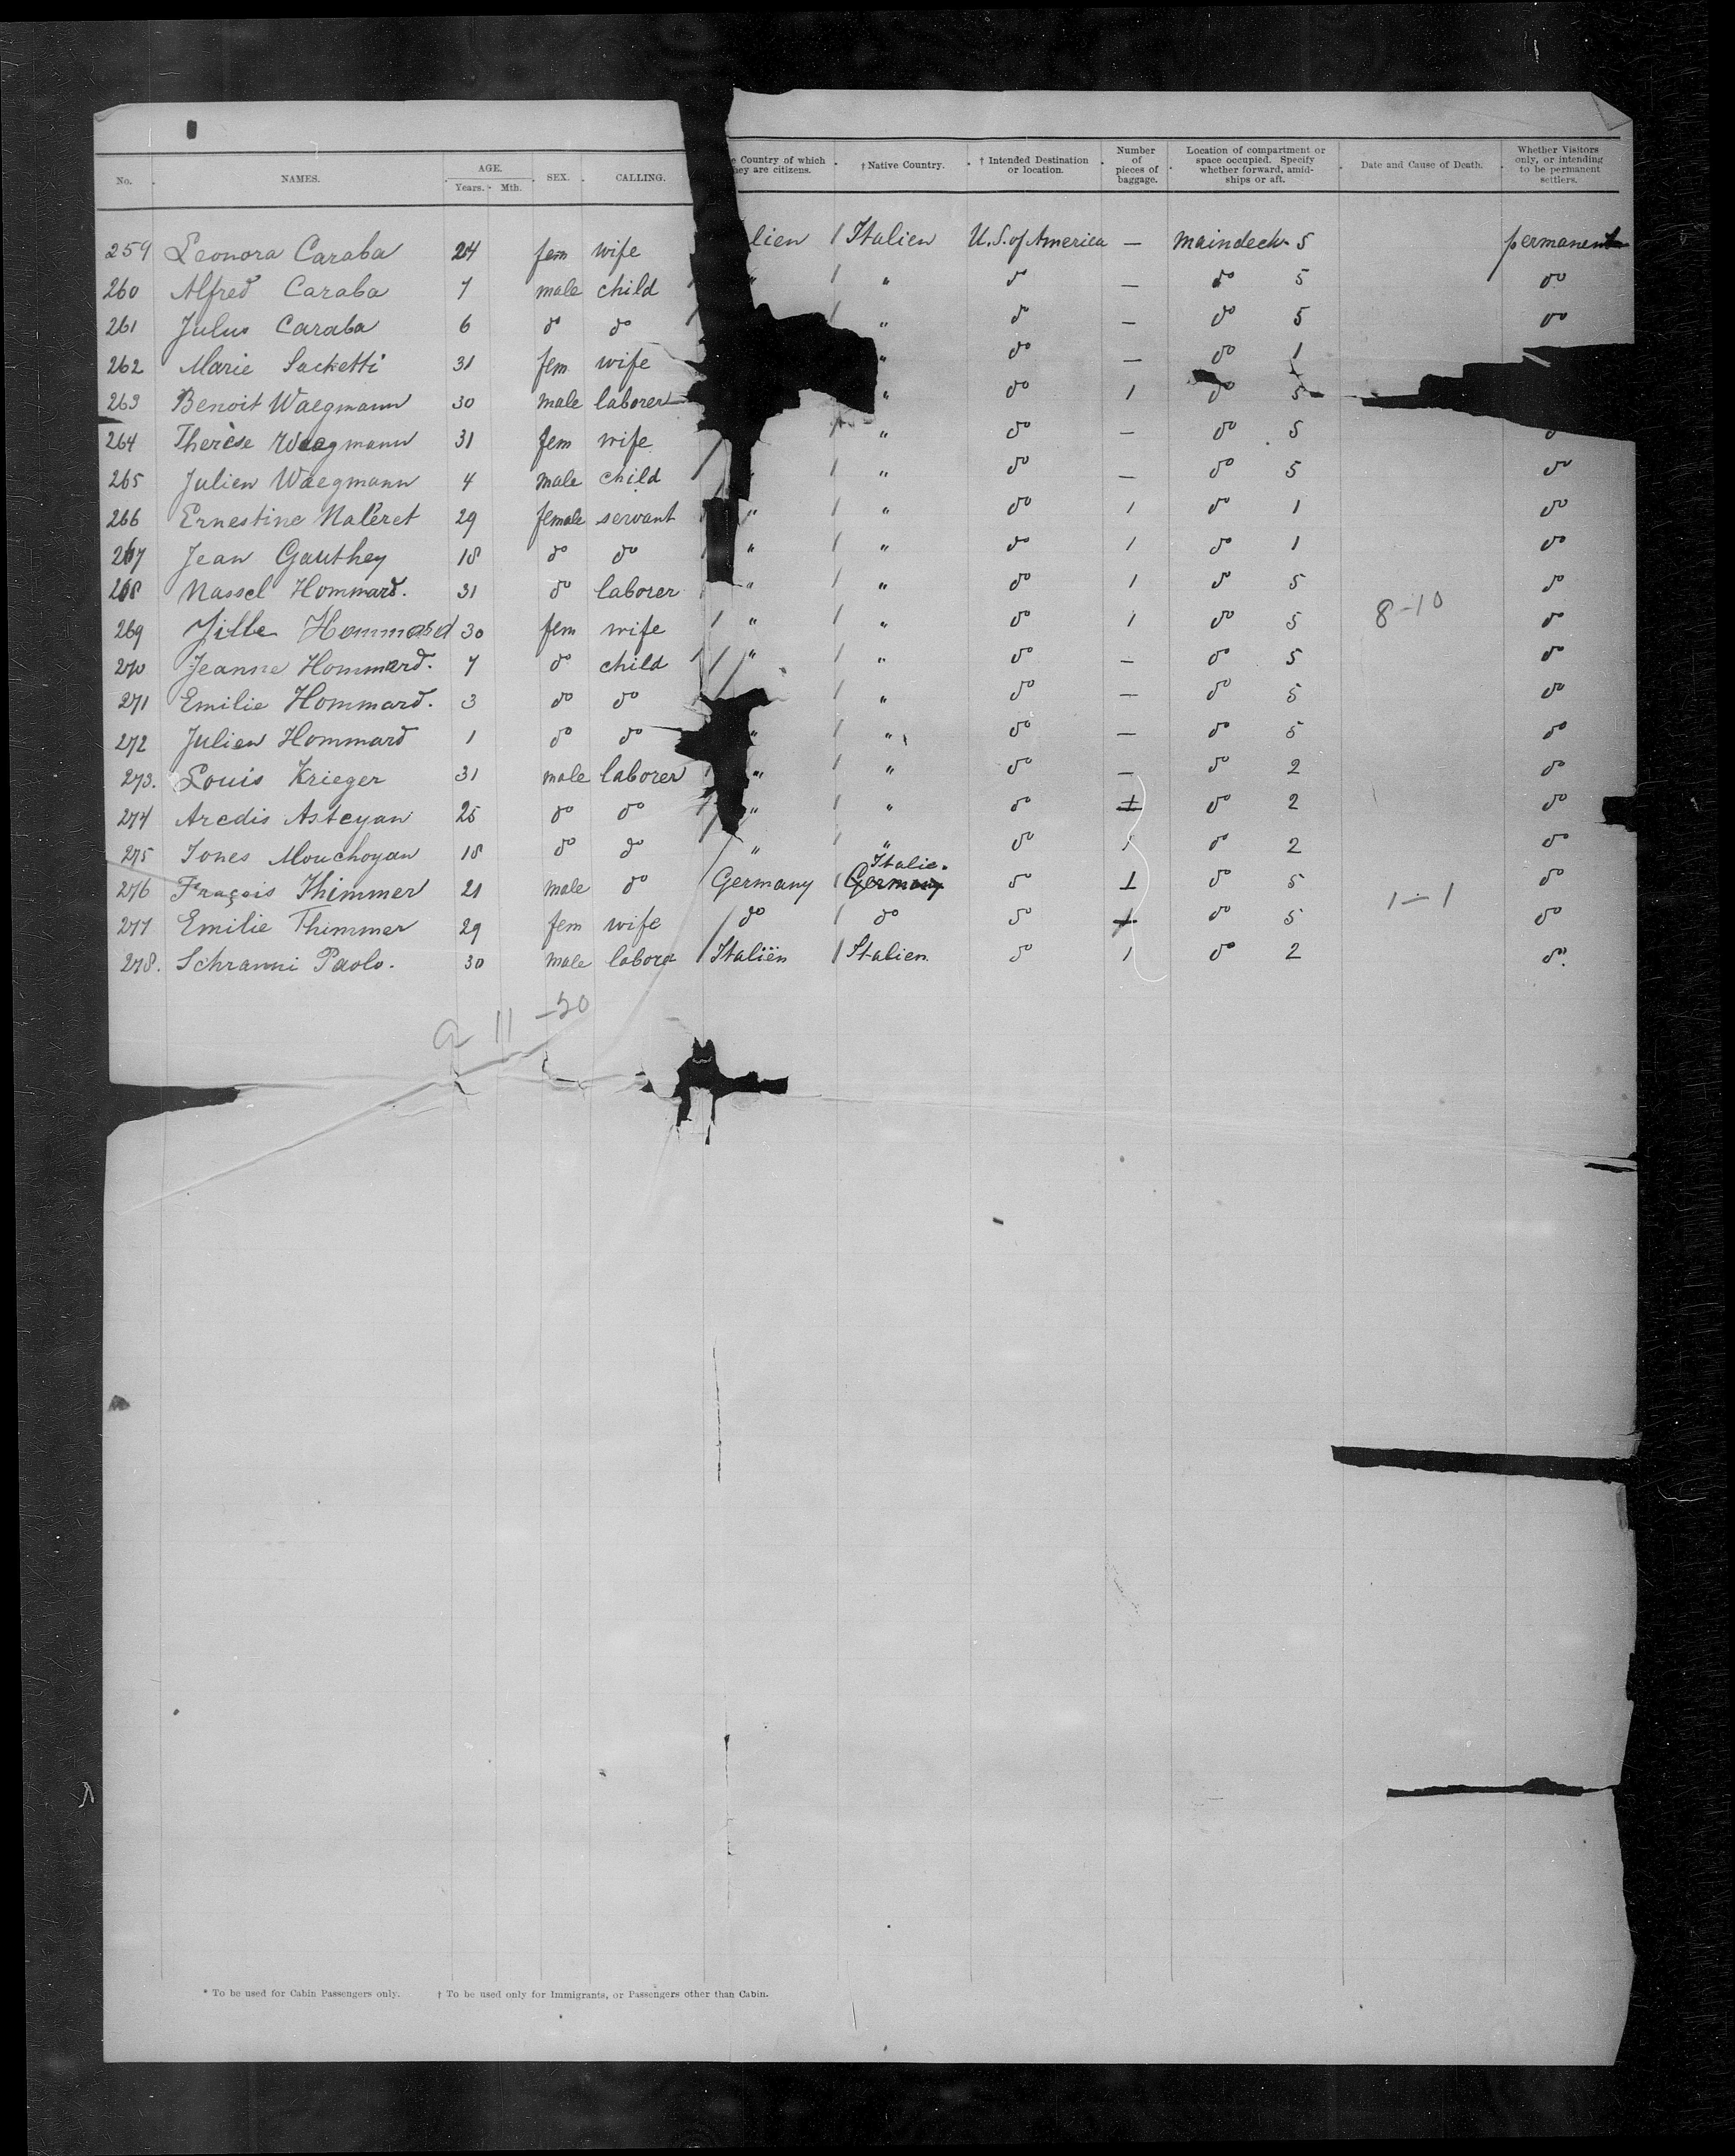 No. NAMES. AGE. Years. Mth. SEX. CALLING. Country of which they are citizens. † Native Country. † Intended Destination or location. Number of pieces of baggage. Location of compartment or space occupied. Specify whether forward, amidships or aft. Date and Cause of Death. Whether Visitors only, or intending to be permanent settlers.
259 Leonora Caraba 24 fem wife lien / Italien U.S. of America — maindeck 5 permanent
260 Alfred Caraba 7 male child " / " do — do 5 do
261 Julus Caraba 6 do do " do — do 5 do
262 Marie Sacketti 31 fem wife " do — do 1
263 Benoit Waegmann 30 male laborer " do 1 do 5
264 Therèse Waegmann 31 fem wife / " do — do 5
265 Julien Waegmann 4 male child / " do — do 5 do
266 Ernestine Naléret 29 female servant " / " do 1 do 1 do
267 Jean Gauthey 18 do do " / " do 1 do 1 do
268 Nassel Hommard. 31 do laborer " / " do 1 do 5 do
269 Hommard 30 fem wife / " / " do 1 do 5 8-10 do
270 Jeanne Hommard. 7 do child / / " / " do — do 5 do
271 Emilie Hommard. 3 do do / " do — do 5 do
272 Julien Hommard 1 do do " / " do — do 5 do
273. Louis Krieger 31 male laborer / " / " do — do 2 do
274 Aredis Asteyan 25 do do / " / " do 1 do 2 do
275 Jones Mouchoyan 18 do do / " / " do 1 do 2 do
Italie.
276 Fraçois Thimmer 21 male do Germany / Germany do 1 do 5 1-1 do
277 Emilie Thimmer 29 fem wife / do / do do 1 do 5 do
278. Schranni Paolo. 30 male labora / Italien / Italien do 1 do 2 do.
a 11 -50
* To be used for Cabin Passengers only. † To be used only for Immigrants, or Passengers other than Cabin.